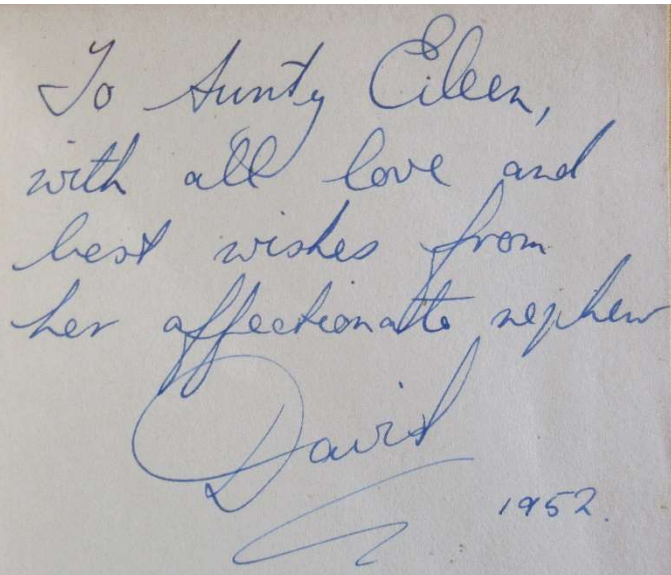 To Aunty Eileen,
with all love and
best wishes from
her affectionate nephew
David
1952.